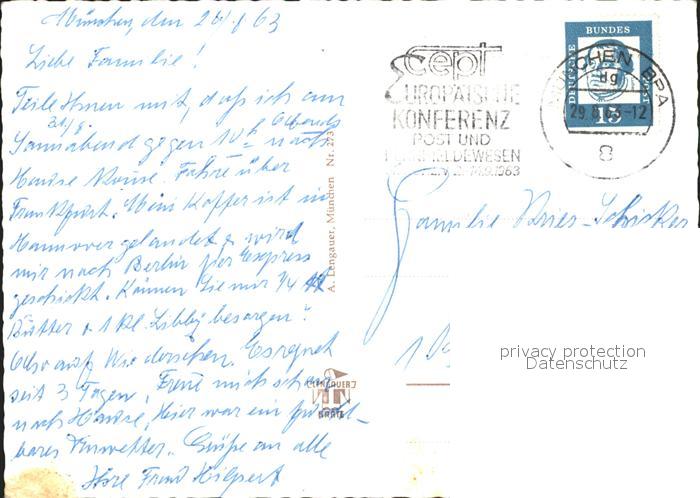 München, den 28/8 63
Liebe Familie!
Teile Ihnen mit, daß ich am
31/8.
Sonnabend gegen 10 h Abends nach
Hause komme. Fahre über
Frankfurt. Mein Koffer ist in
Hannover gelandet & wird
mir nach Berlin per Express
geschickt. Können Sie mir 1/4
Butter u 1 kl. Libby besorgen?
Also auf Wiedersehen. Es regnet
seit 3 Tagen, Freue mich schon
nach Hause, hier war ein furcht-
bares Unwetter. Grüße an alle
Ihre Frau Hilpert
A. Lengauer, München Nr. 273
cept
EUROPÄISCHE
KONFERENZ
POST UND
FERNMELDEWESEN
.9.1963
DEUTSCHE BUNDESPOST
15
MÜNCHEN BPA
dg
29.8.63-12
8
Familie
1
LENGAUER
KARTE
privacy protection
Datenschutz